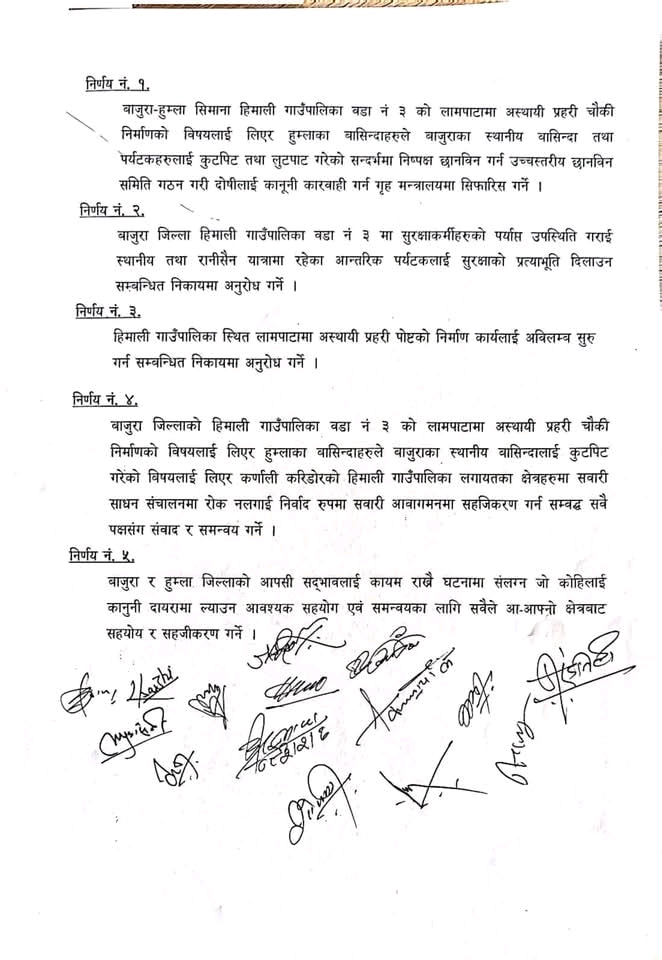 निर्णय नं. १.
बाजुरा-हुम्ला सिमाना हिमाली गाउँपालिका वडा नं ३ को लामपाटामा अस्थायी प्रहरी चौकी
निर्माणको विषयलाई लिएर हुम्लाका बासिन्दाहरुले बाजुराका स्थानीय वासिन्दा तथा
पर्यटकहरुलाई कुटपिट तथा लुटपाट गरेको सन्दर्भमा निष्पक्ष छानविन गर्न उच्चस्तरीय छानविन
समिति गठन गरी दोषीलाई कानूनी कारवाही गर्न गृह मन्त्रालयमा सिफारिस गर्ने ।
निर्णय नं. २.
बाजुरा जिल्ला हिमाली गाउँपालिका वडा नं ३ मा सुरक्षाकर्मीहरुको पर्याप्त उपस्थिति गराई
स्थानीय तथा रानीसैन यात्रामा रहेका आन्तरिक पर्यटकलाई सुरक्षाको प्रत्याभूति दिलाउन
सम्बन्धित निकायमा अनुरोध गर्ने ।
निर्णय नं. ३.
हिमाली गाउँपालिका स्थित लामपाटामा अस्थायी प्रहरी पोष्टको निर्माण कार्यलाई अविलम्व सुरु
गर्न सम्बन्धित निकायमा अनुरोध गर्ने ।
निर्णय नं. ४.
बाजुरा जिल्लाको हिमाली गाउँपालिका वडा नं ३ को लामपाटामा अस्थायी प्रहरी चौकी
निर्माणको विषयलाई लिएर हुम्लाका वासिन्दाहरुले बाजुराका स्थानीय वासिन्दालाई कुटपिट
गरेको विषयलाई लिएर कर्णाली करिडोरको हिमाली गाउँपालिका लगायतका क्षेत्रहरुमा सवारी
साधन संचालनमा रोक नलगाई निर्वाद रुपमा सवारी आवागमनमा सहजिकरण गर्न सम्वद्ध सवै
पक्षसंग संवाद र समन्वय गर्ने ।
निर्णय नं. ५.
बाजुरा र हुम्ला जिल्लाको आपसी सद्भावलाई कायम राख्नै घटनामा संलग्न जो कोहिलाई
कानुनी दायरामा ल्याउन आवश्यक सहयोग एवं समन्वयका लागि सवैले आ-आफ्नो क्षेत्रबाट
सहयोय र सहजीकरण गर्ने ।